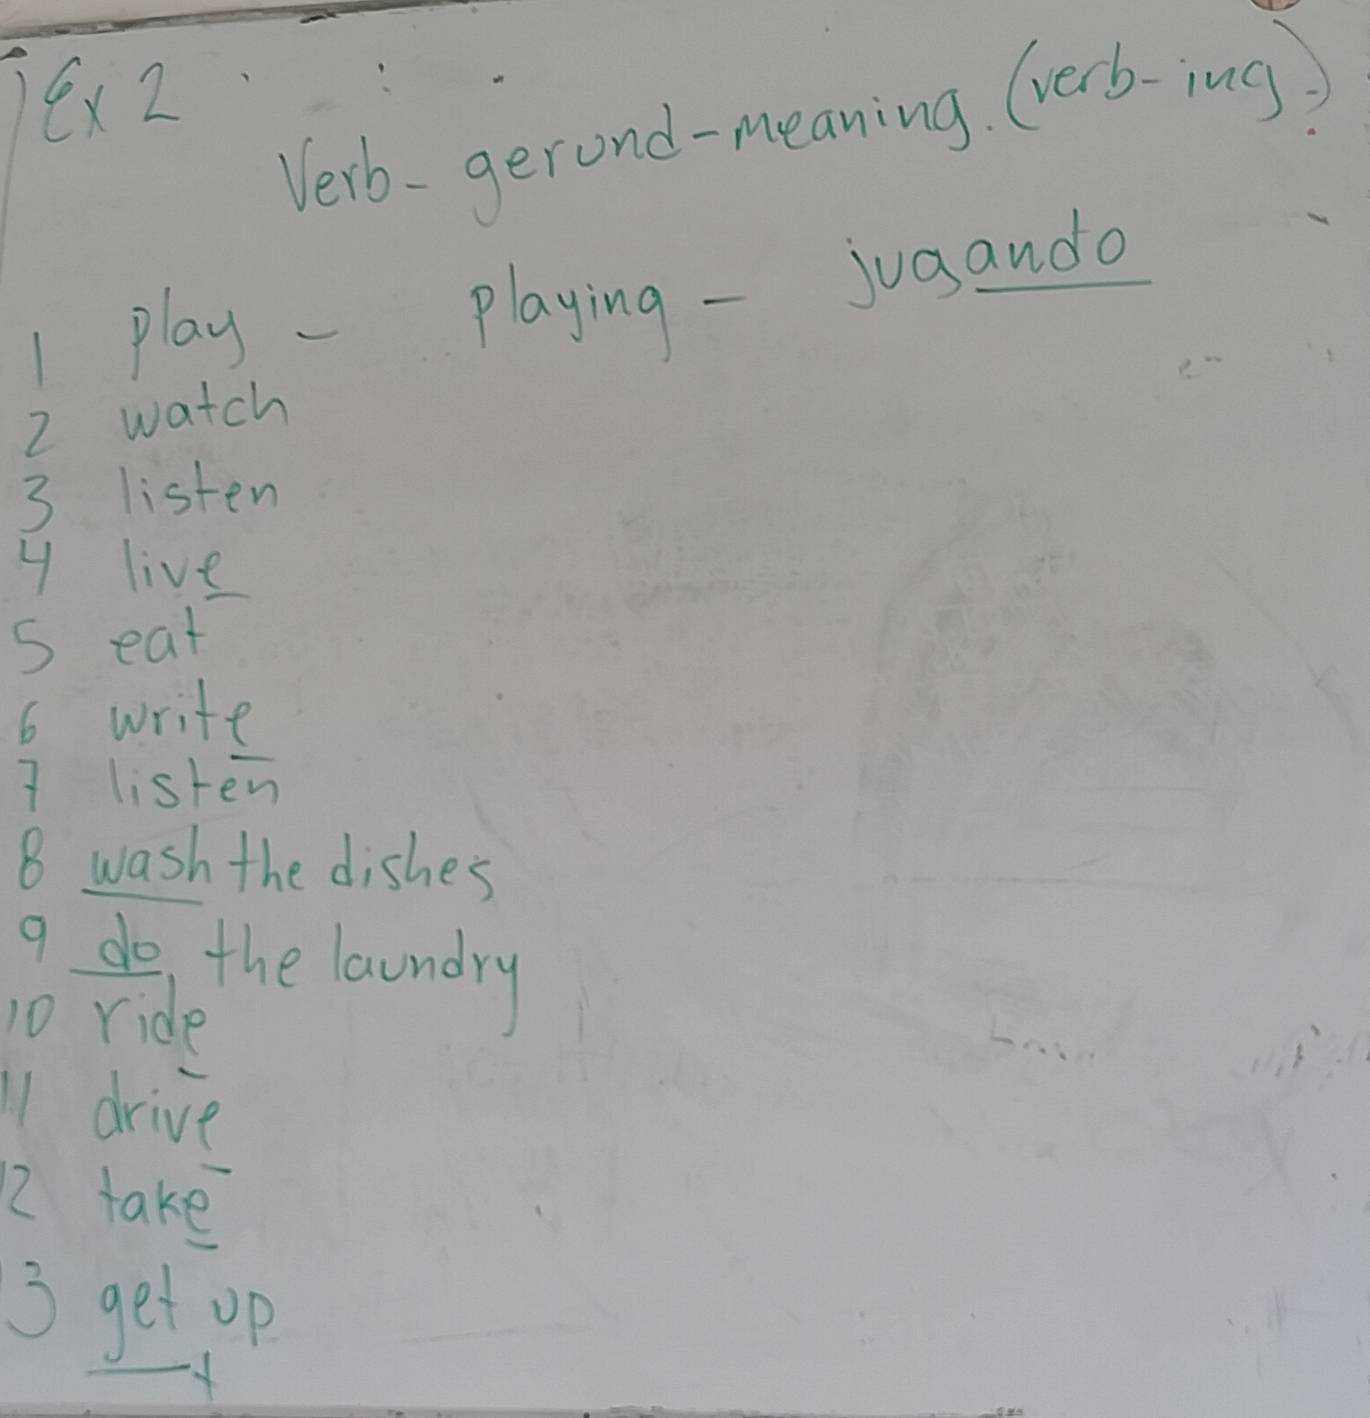 Ex 2
Verb - gerund - meaning. (verb-ing)
1 play - playing - jugando
2 watch
3 listen
4 live
5 eat
6 write
7 listen
8 wash the dishes
9 do the laundry
10 ride
11 drive
12 take
13 get up
t